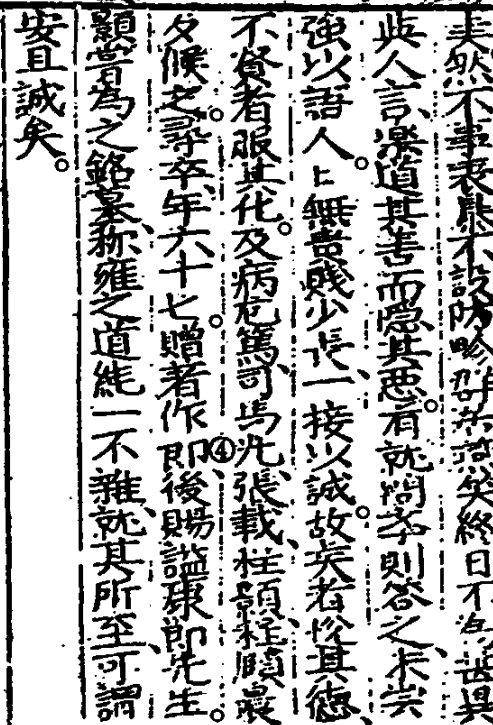 夫然不事表暴不設防畛群居燕笑終日不為甚異
与人言、楽道其善而隠其悪。有就問学則答之、未嘗
強以語人。〻無貴賤少長、一接以誠。故賢者悦其徳、
不賢者服其化。及病危篤、司馬光、張載、程顥、程頤晨
夕候之。尋卒、年六十七。贈著作郎④、後賜諡康節先生。
顥嘗為之銘墓、称雍之道純一不雑、就其所至、可謂
安且誠矣。